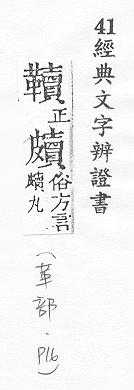 41經典文字辨證書
韇正
皾俗方言皾丸
（革部．P16）